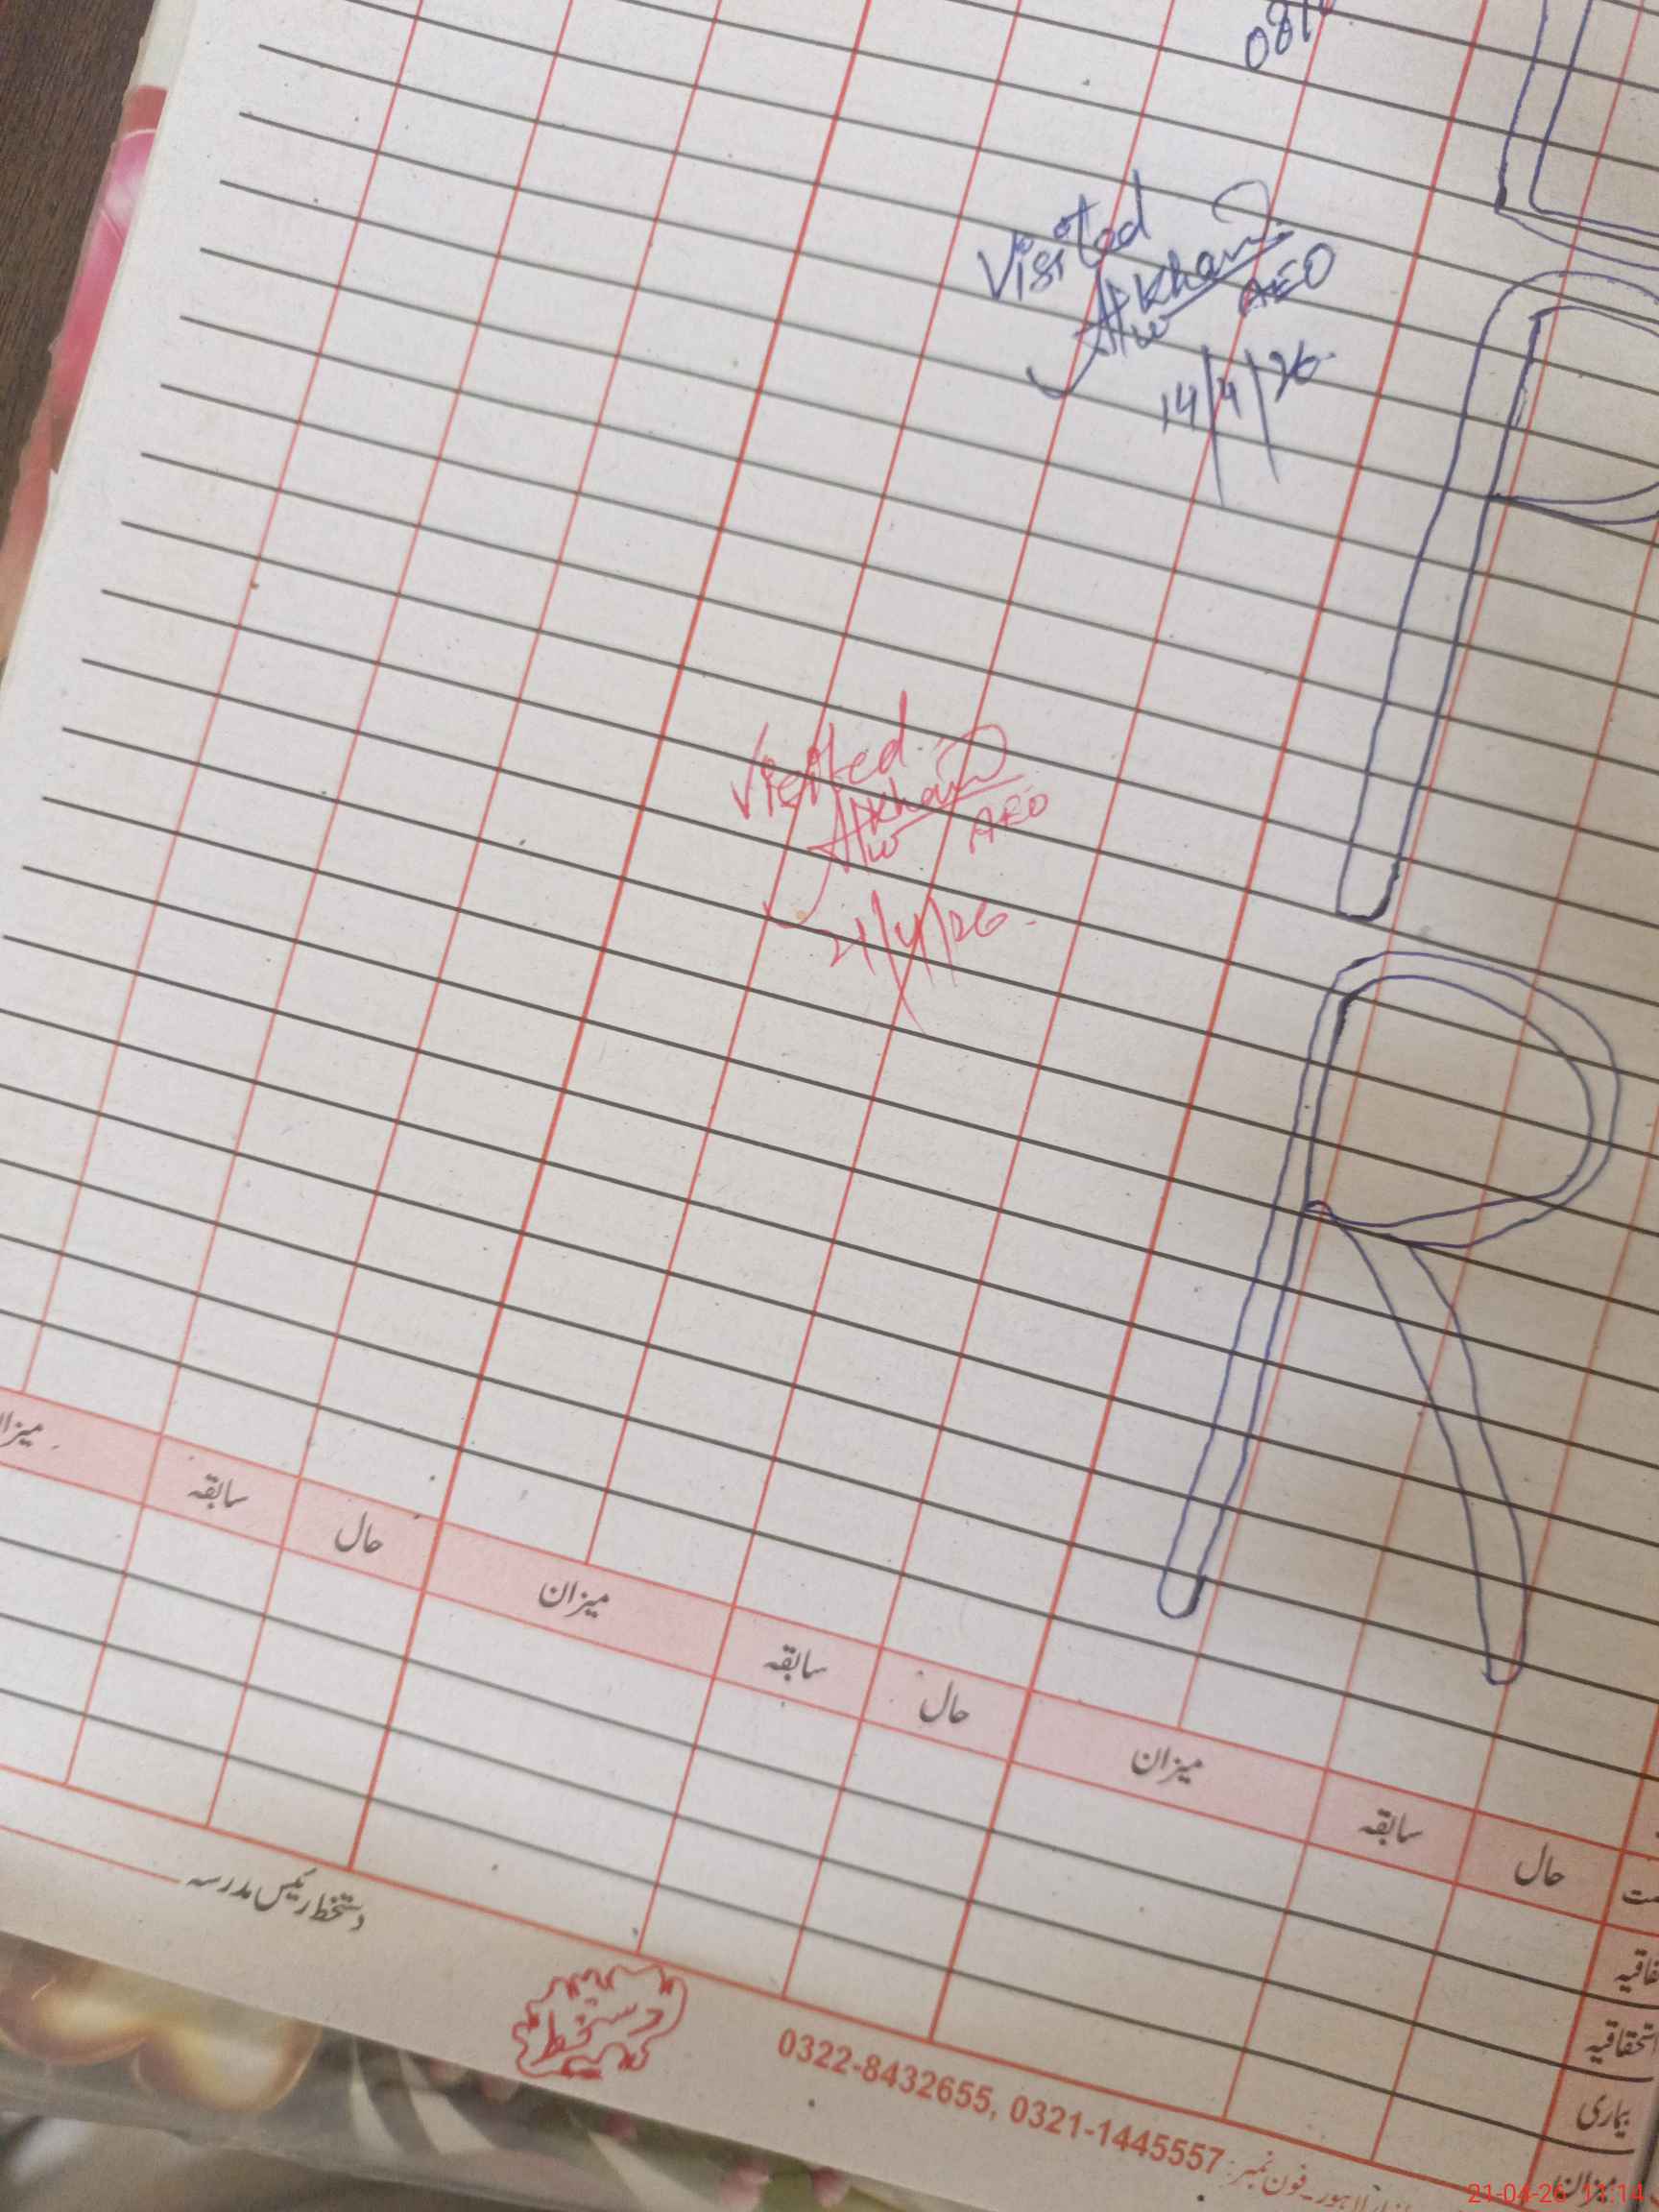 Visited
Khan
AEO
14/4/26
Visited
Khan
AEO
21/4/26
R
حال سابقہ میزان حال سابقہ میزان حال سابقہ
بیماری
میزان
دستخط رئیس مدرسہ
دستخط
فون نمبر: 0322-8432655, 0321-1445557
21-04-26 11:14